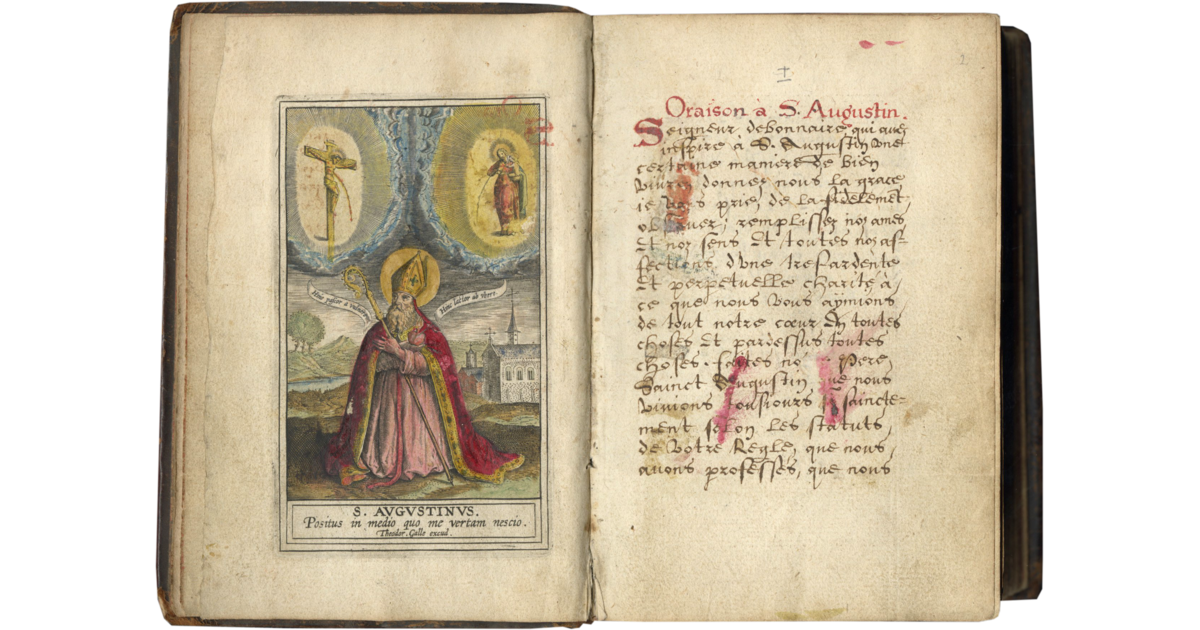 Hinc pascor a vulnere.
Hinc lactor ab ubere.
S. AVGVSTINVS.
Positus in medio quo me vertam nescio.
Theodor. Galle excud.
Oraison à S. Augustin.
Seigneur debonnaire qui avez
inspire à S. Augustin vne
certaine maniere de bien
viure, donnez nous la grace
ie vous prie, de la fidelemēt
obseruer; remplissez noz ames
et noz sens et toutes noz af-
fections d'vne tresardente
et perpetuelle charité à
ce que nous vous aymions
de tout notre cœur en toutes
choses et pardessus toutes
choses. Faites Pere
Sainct Augustin que nous
viuions tousiours saincte-
ment selon les statuts
de votre Regle, que nous
auons professes, que nous